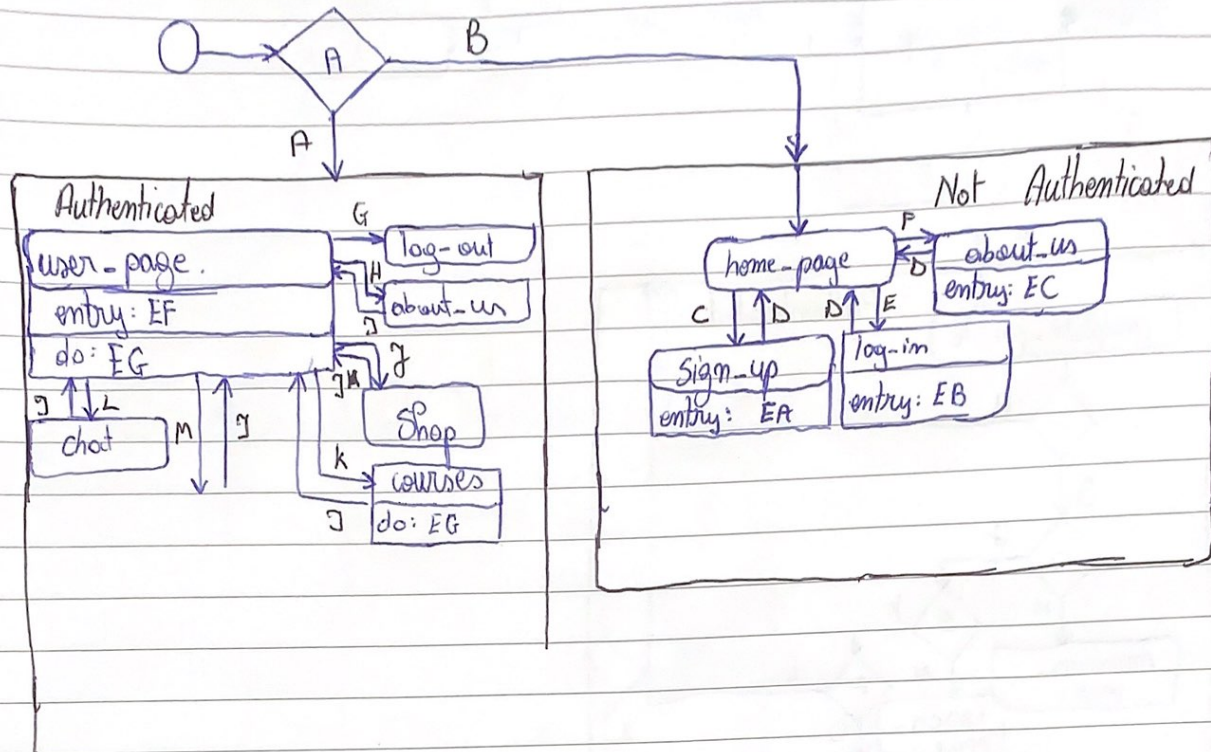 A
B
A
Authenticated
user_page.
entry: EF
do: EG
G
log_out
H
about_us
J
J
Shop
J
L
chat
M
J
K
J
courses
do: EG
Not Authenticated
home_page
F
D
about_us
entry: EC
C
D
D
E
sign_up
entry: EA
log_in
entry: EB